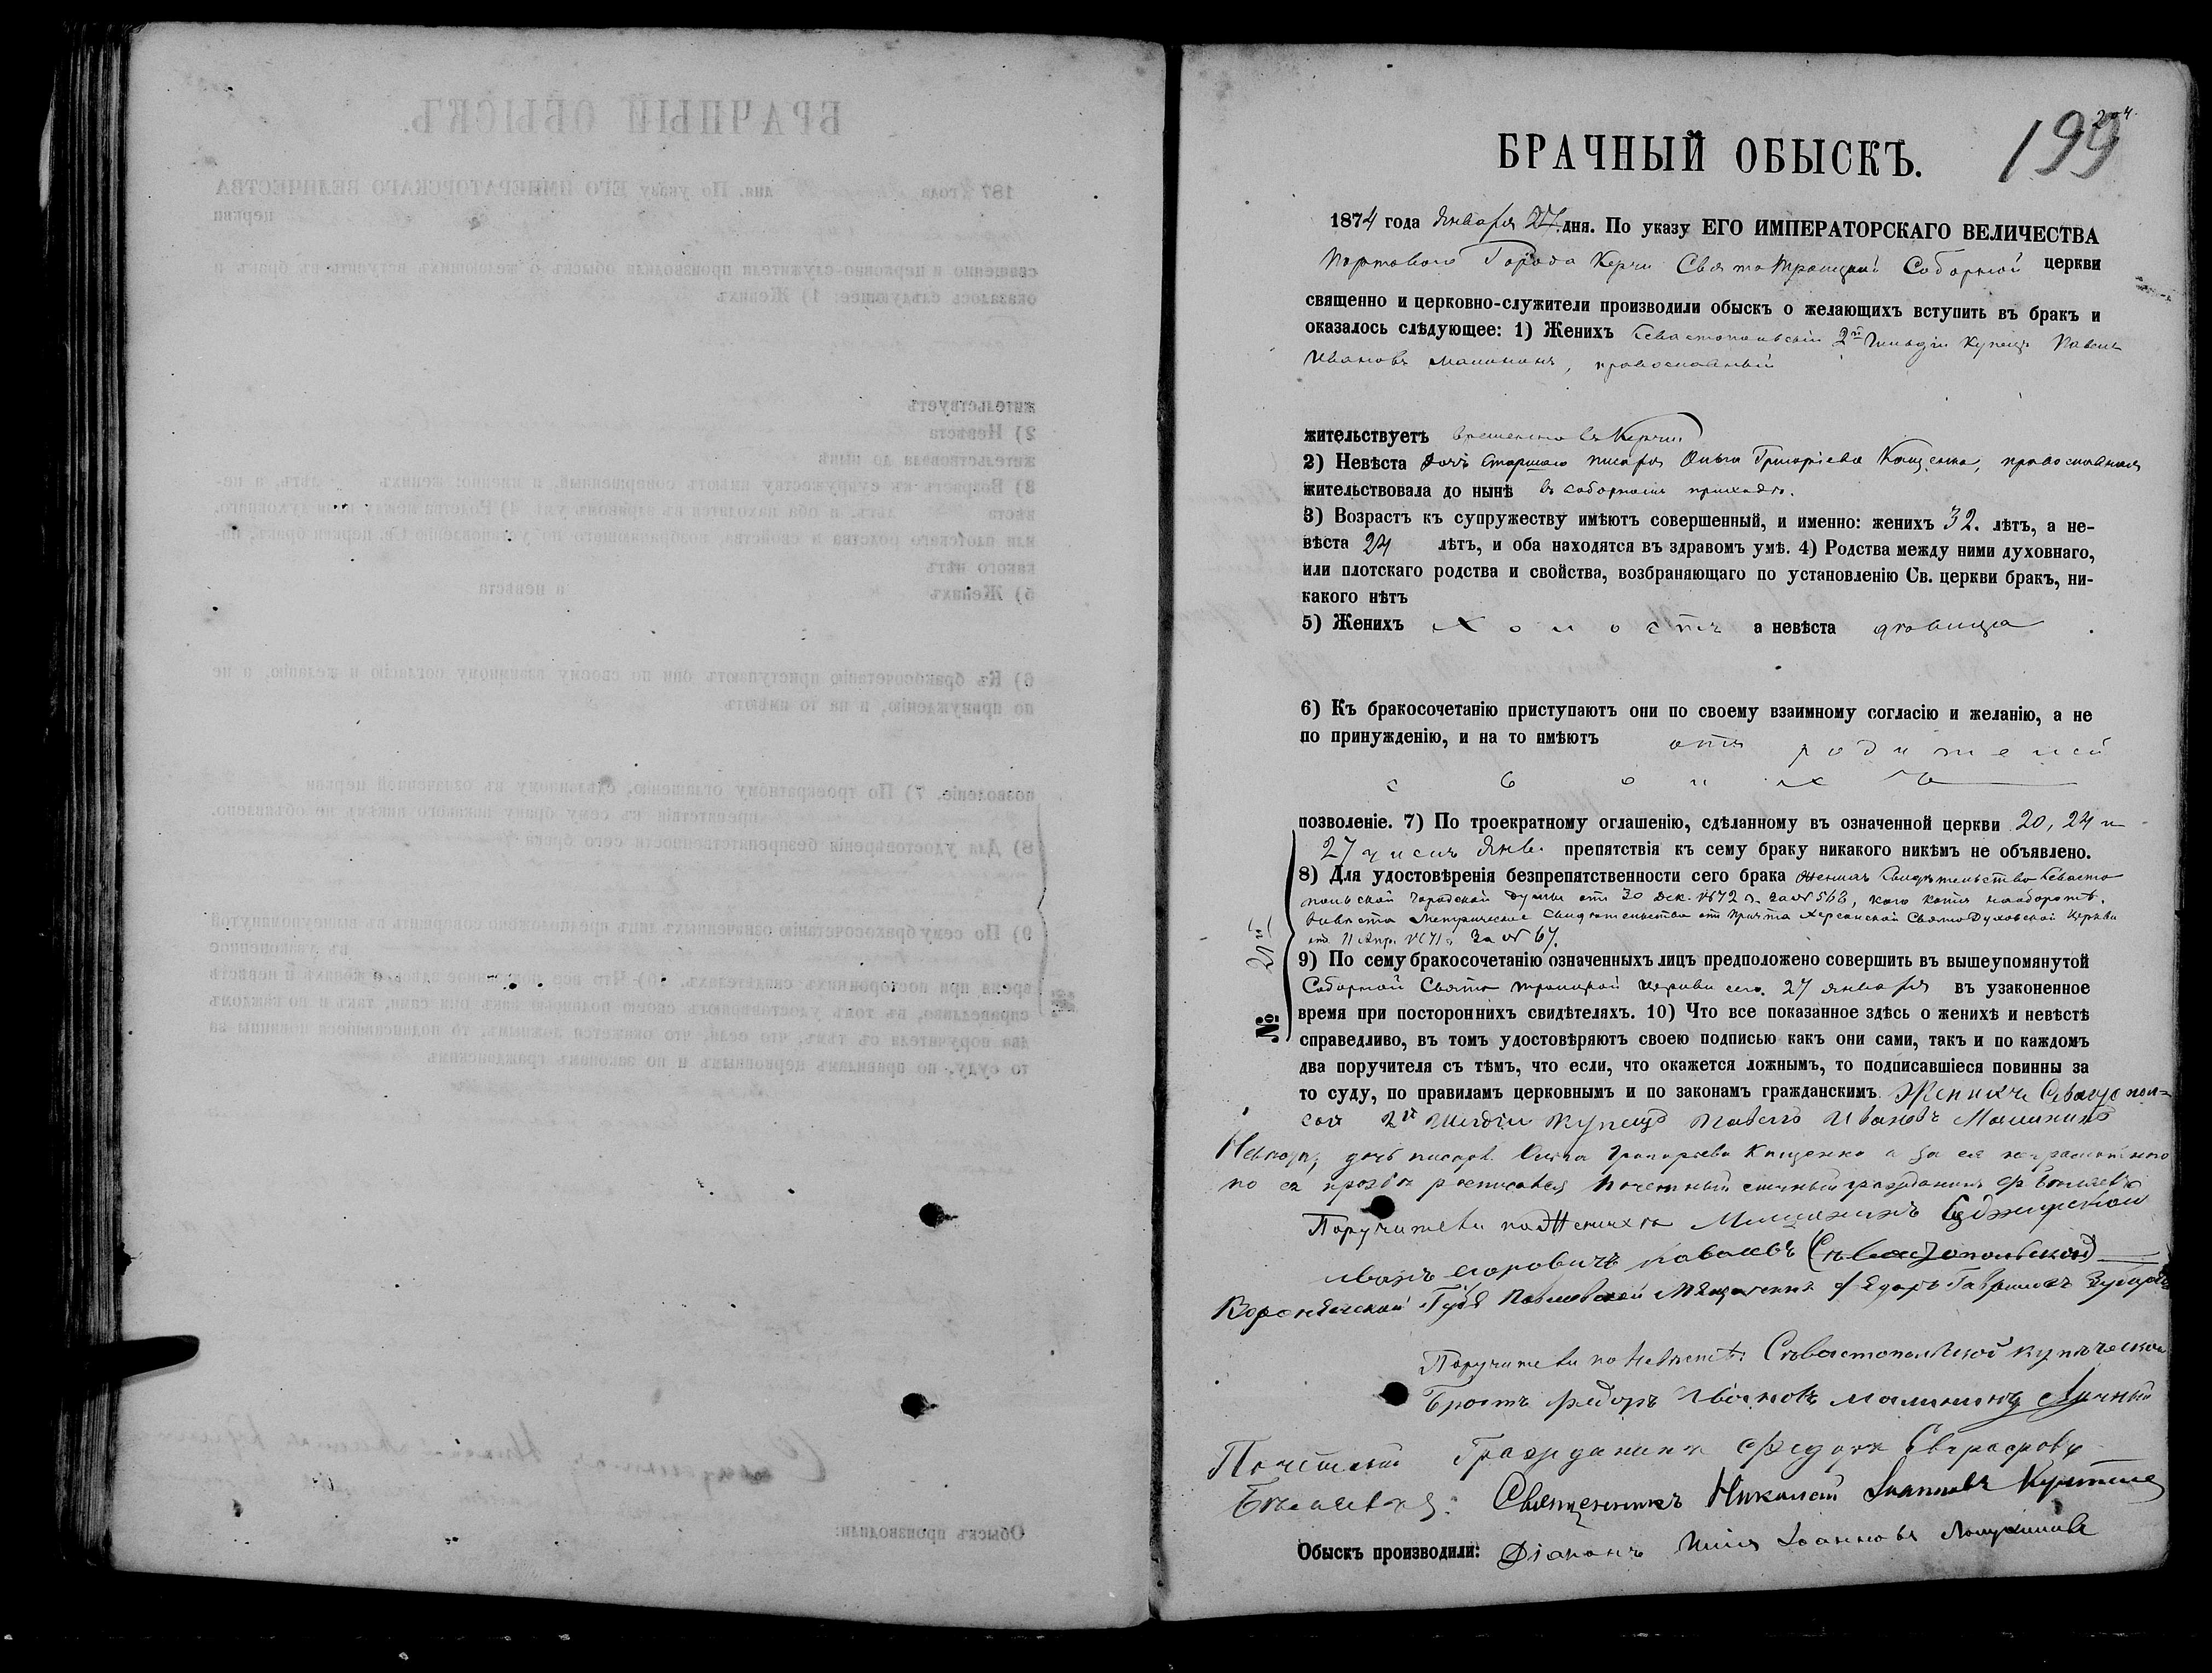 204.
199
БРАЧНЫЙ ОБЫСКЪ.
1874 года Января 27 дня. По указу ЕГО ИМПЕРАТОРСКАГО ВЕЛИЧЕСТВА
Портоваго Города Керчи Свято Троицкой Соборной церкви
священно и церковно-служители производили обыскъ о желающихъ вступить въ бракъ и
оказалось слѣдующее: 1) Женихъ Севастопольскій 2й Гильдіи Купецъ Павелъ
Ивановъ Малининъ, православный
жительствуетъ временно въ Керчи
2) Невѣста дочь старшаго писаря Ольга Григорьева Кащенко, православная
жительствовала до нынѣ въ соборномъ приходѣ.
3) Возрастъ къ супружеству имѣютъ совершенный, и именно: женихъ 32. лѣтъ, а не-
вѣста 24 лѣтъ, и оба находятся въ здравомъ умѣ. 4) Родства между ними духовнаго,
или плотскаго родства и свойства, возбраняющаго по установленію Св. церкви бракъ, ни-
какого нѣтъ
5) Женихъ холостъ а невѣста дѣвица
6) Къ бракосочетанію приступаютъ они по своему взаимному согласію и желанію, а не
по принужденію, и на то имѣютъ отъ родителей
своихъ
позволеніе. 7) По троекратному оглашенію, сдѣланному въ означенной церкви 20, 24 и
27 числъ Янв. препятствія къ сему браку никакого никѣмъ не объявлено.
8) Для удостовѣренія безпрепятственности сего брака женихъ Свидѣтельство Севасто
польской Городской Думы отъ 30 Дек. 1872 г. за № 568, коего копія наоборотѣ.
Невѣста Метрическое Свидѣтельство отъ Причта Херсонской Свято Духовской Церкви
отъ 11 Апр. 1871 г. за № 67.
9) По сему бракосочетанію означенныхъ лицъ предположено совершить въ вышеупомянутой
Соборной Свято Троицкой Церкви сего 27 Января въ узаконенное
время при постороннихъ свидѣтеляхъ. 10) Что все показанное здѣсь о женихѣ и невѣстѣ
справедливо, въ томъ удостовѣряютъ своею подписью какъ они сами, такъ и по каждомъ
два поручителя съ тѣмъ, что если, что окажется ложнымъ, то подписавшіеся повинны за
то суду, по правиламъ церковнымъ и по законамъ гражданскимъ. Женихъ Севастополь=
ской 2й Гильдіи Купецъ Павелъ Ивановъ Малининъ
Невѣста, дочь писаря Ольга Григорьева Кащенко а за ея неграмотною
по ея прозбѣ росписался Почетный личный гражданинъ
Поручители по Женихѣ Мещанинъ
Иванъ Егоровичъ (Севастопольской)
Воронежской Губ. Павловской Мещанинъ Федоръ Гавриловъ
Поручители по Невѣстѣ: Севастопольской купеческой
Братъ Федоръ Ивановъ Малининъ Личный
Почетный Гражданинъ Федоръ
Священникъ Николай Іоанновъ
Обыскъ производили: Діаконъ Іоанновъ
№